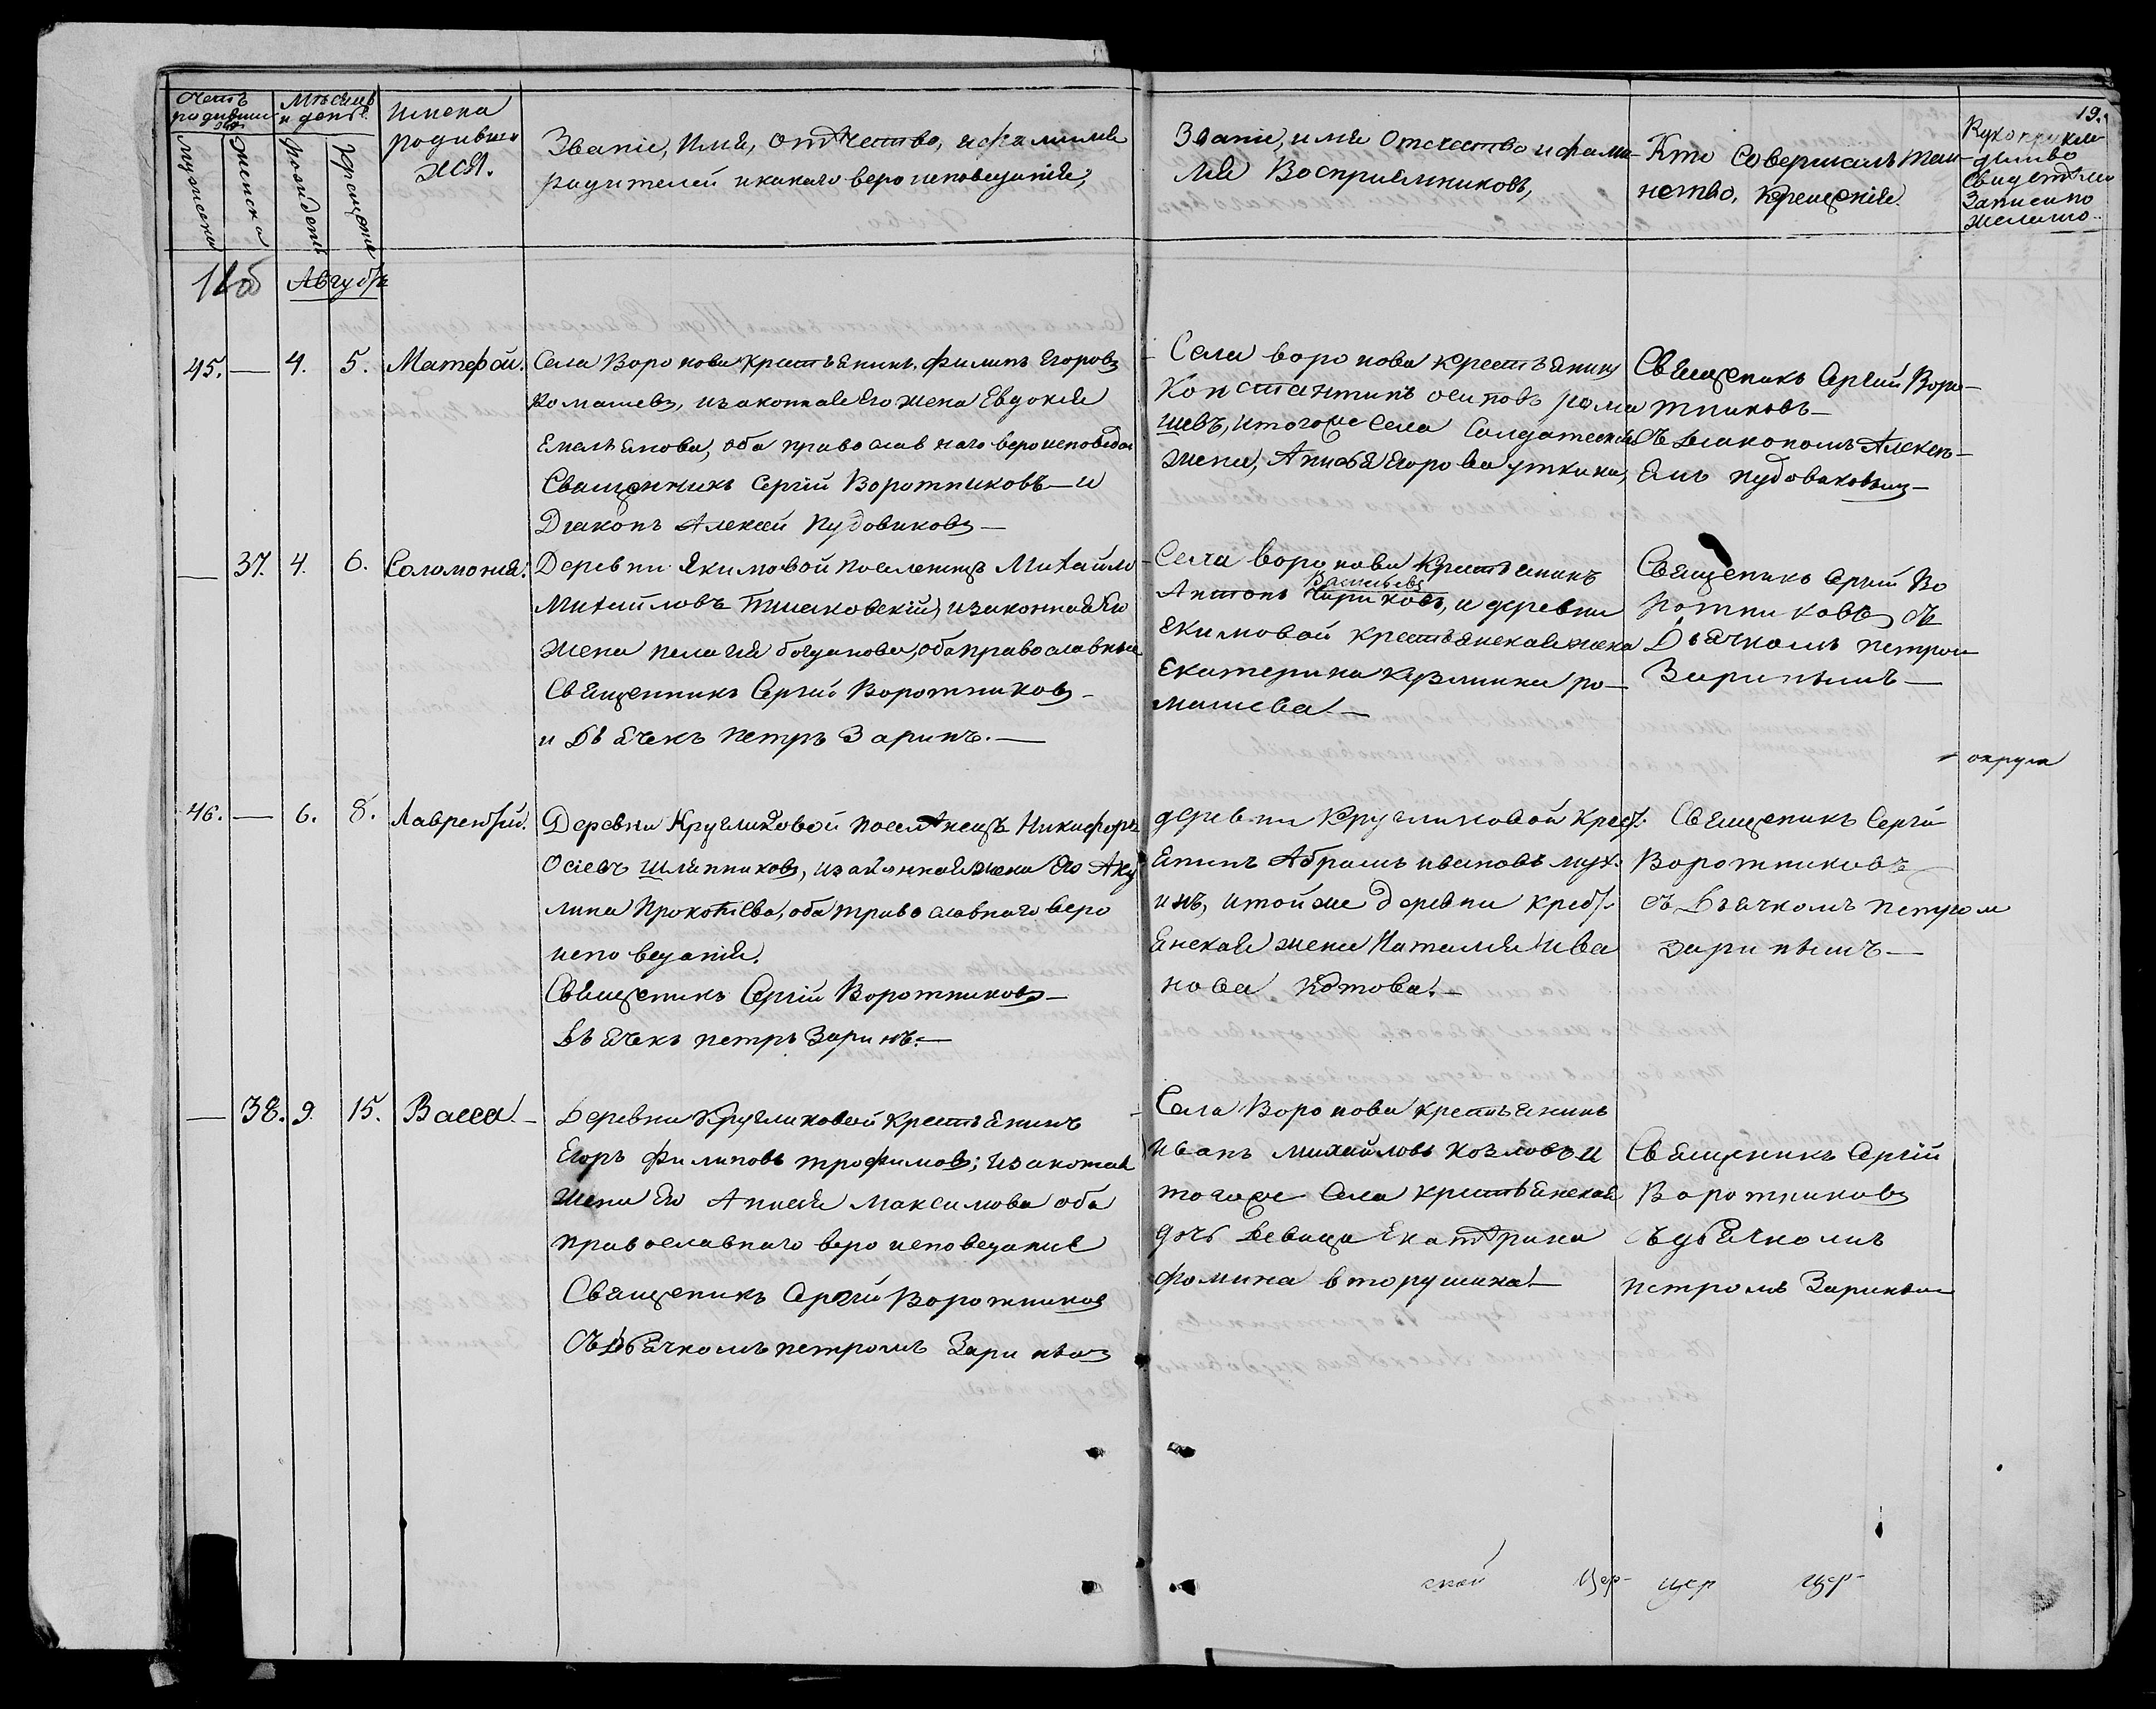 19.
Счетъ родившихся
Мѣсяцъ и день
мужеска
женска
рожденія
крещенія
Имена
родивши
хся.
Званіе, Имя, Отчество, и фамилія
родителей и какаго вероисповеданія,
Званіе, имя Отечество и фами-
лія Восприемниковъ,
Кто Совершалъ таи-
нство, Крещенія.
Рукоприкла
дство
Свидетелей
Записи по
желанію
Августъ
45. — 4. 5. Матфей.
Села Воронова крестьянинъ Филипъ Егоровъ
Ромашевъ, и законная Его жена Евдокія
Емельянова, оба православнаго вероисповедан
Священникъ Сергій Воротниковъ — и
Диаконъ Алексей Пудовиковъ —
Села Воронова крестьянинъ
Константинъ осиповъ рома
шевъ, и тогоже Села Солдатская
жена, Анисья Егорова уткина,
Священикъ Сергій Воро-
тниковъ —
Съ Диакономъ Алексе-
емъ пудовиковымъ —
— 37. 4. 6. Соломонія.
Деревни Якимовой поселенецъ Михайло
Михайловъ и законная Его
жена пелагия богданова, оба православныя
Священникъ Сергій Воротниковъ —
и Дьячекъ Петръ Заринъ. —
Села Воронова Крестьянинъ
Васильевъ
Антонъ Чириковъ, и деревни
Екимовой крестьянская жена
Екатерина Кузмина ро-
машева. —
Священикъ Сергій Во
ротниковъ съ
Дьячкомъ петром
Заринымъ —
округа
46. — 6. 8. Лаврентій.
Деревни Кругликовой поселенецъ Никифоръ
Осіевъ Шляпниковъ, и законная жена Его Аку
лина Прокопьева, оба православнаго веро
исповеданія.
Священикъ Сергій Воротниковъ —
Дьячекъ петръ Заринъ. —
деревни Кругликовой крест.
янинъ Абрамъ ивановъ мух.
инъ, и тойже деревни крест.
янская жена Наталия Ива
нова Котова. —
Священикъ Сергій
Воротниковъ
съ Дьячкомъ петром
Заринымъ —
— 38. 9. 15. Васса. —
Деревни Кругликовой крестьянинъ
Егоръ Филиповъ трофимовъ; и законая
жена Его Анисия Максимова оба
православнаго веро исповедания
Священикъ Сергій Воротников
Съ Дьячкомъ петромъ Зариным
Села Воронова крестьянинъ
Иванъ Михайловъ Козловъ и
тогоже Села крестьянская
дочь Девица Екатерина
Фомина вторушина. —
Священикъ Сергій
Воротниковъ
Съ дьячкомъ
петромъ Зариным
ской Цер- цер цер-